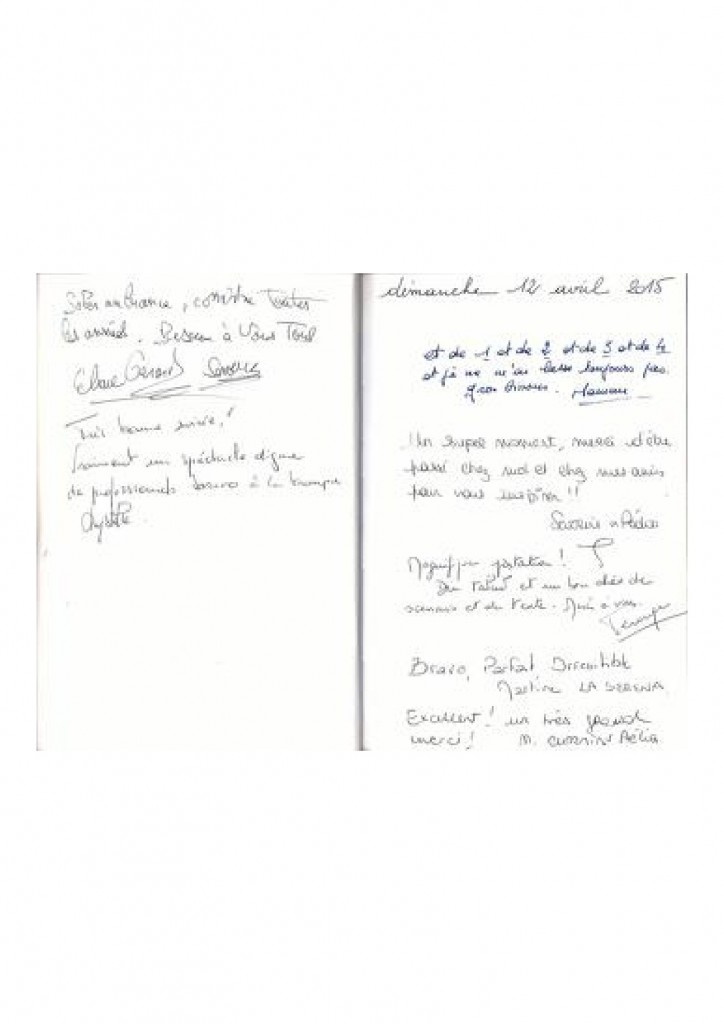 ambiance, comme toutes
les années. à Vous Tous
Gérard
Très bonne soirée!
Vraiment un spectacle digne
de professionnels bravo à la troupe
dimanche 12 avril 2015
et de 1 et de 2 et de 3 et de 4
et je ne m'en lasse toujours pas.
Gros bisous. Maman
Un super moment, merci d'être
passé chez moi et chez mes amis
pour vous inspirer!!
Magnifique prestation!
Du talent et un bon choix de
scénario et du texte. Merci à vous.
Bravo, Parfait Irresistible
Martine LA SERENA
Excellent! un très grand
merci! M.